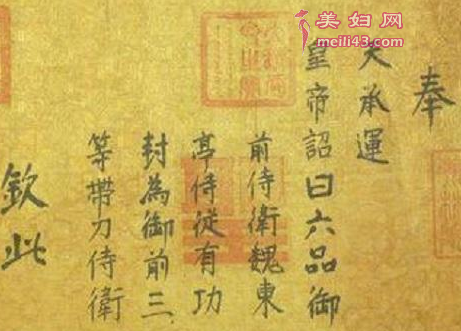 美妇网
meili43.com
奉
天承運
皇帝詔曰六品御
前侍衛魏東
亭侍從有功
封為御前三
等帶刀侍衛
欽此